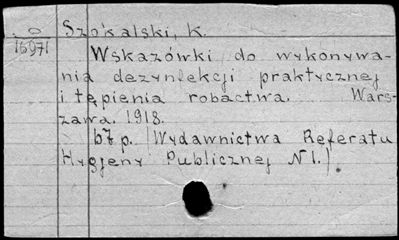 Szokalski, K.
16971
Wskazówki do wykonywa-
nia dezynfekcji praktycznej
i tępienia robactwa. Wars-
zawa. 1918.
67p. (Wydawnictwa Referatu
Hygjeny Publicznej N 1.).